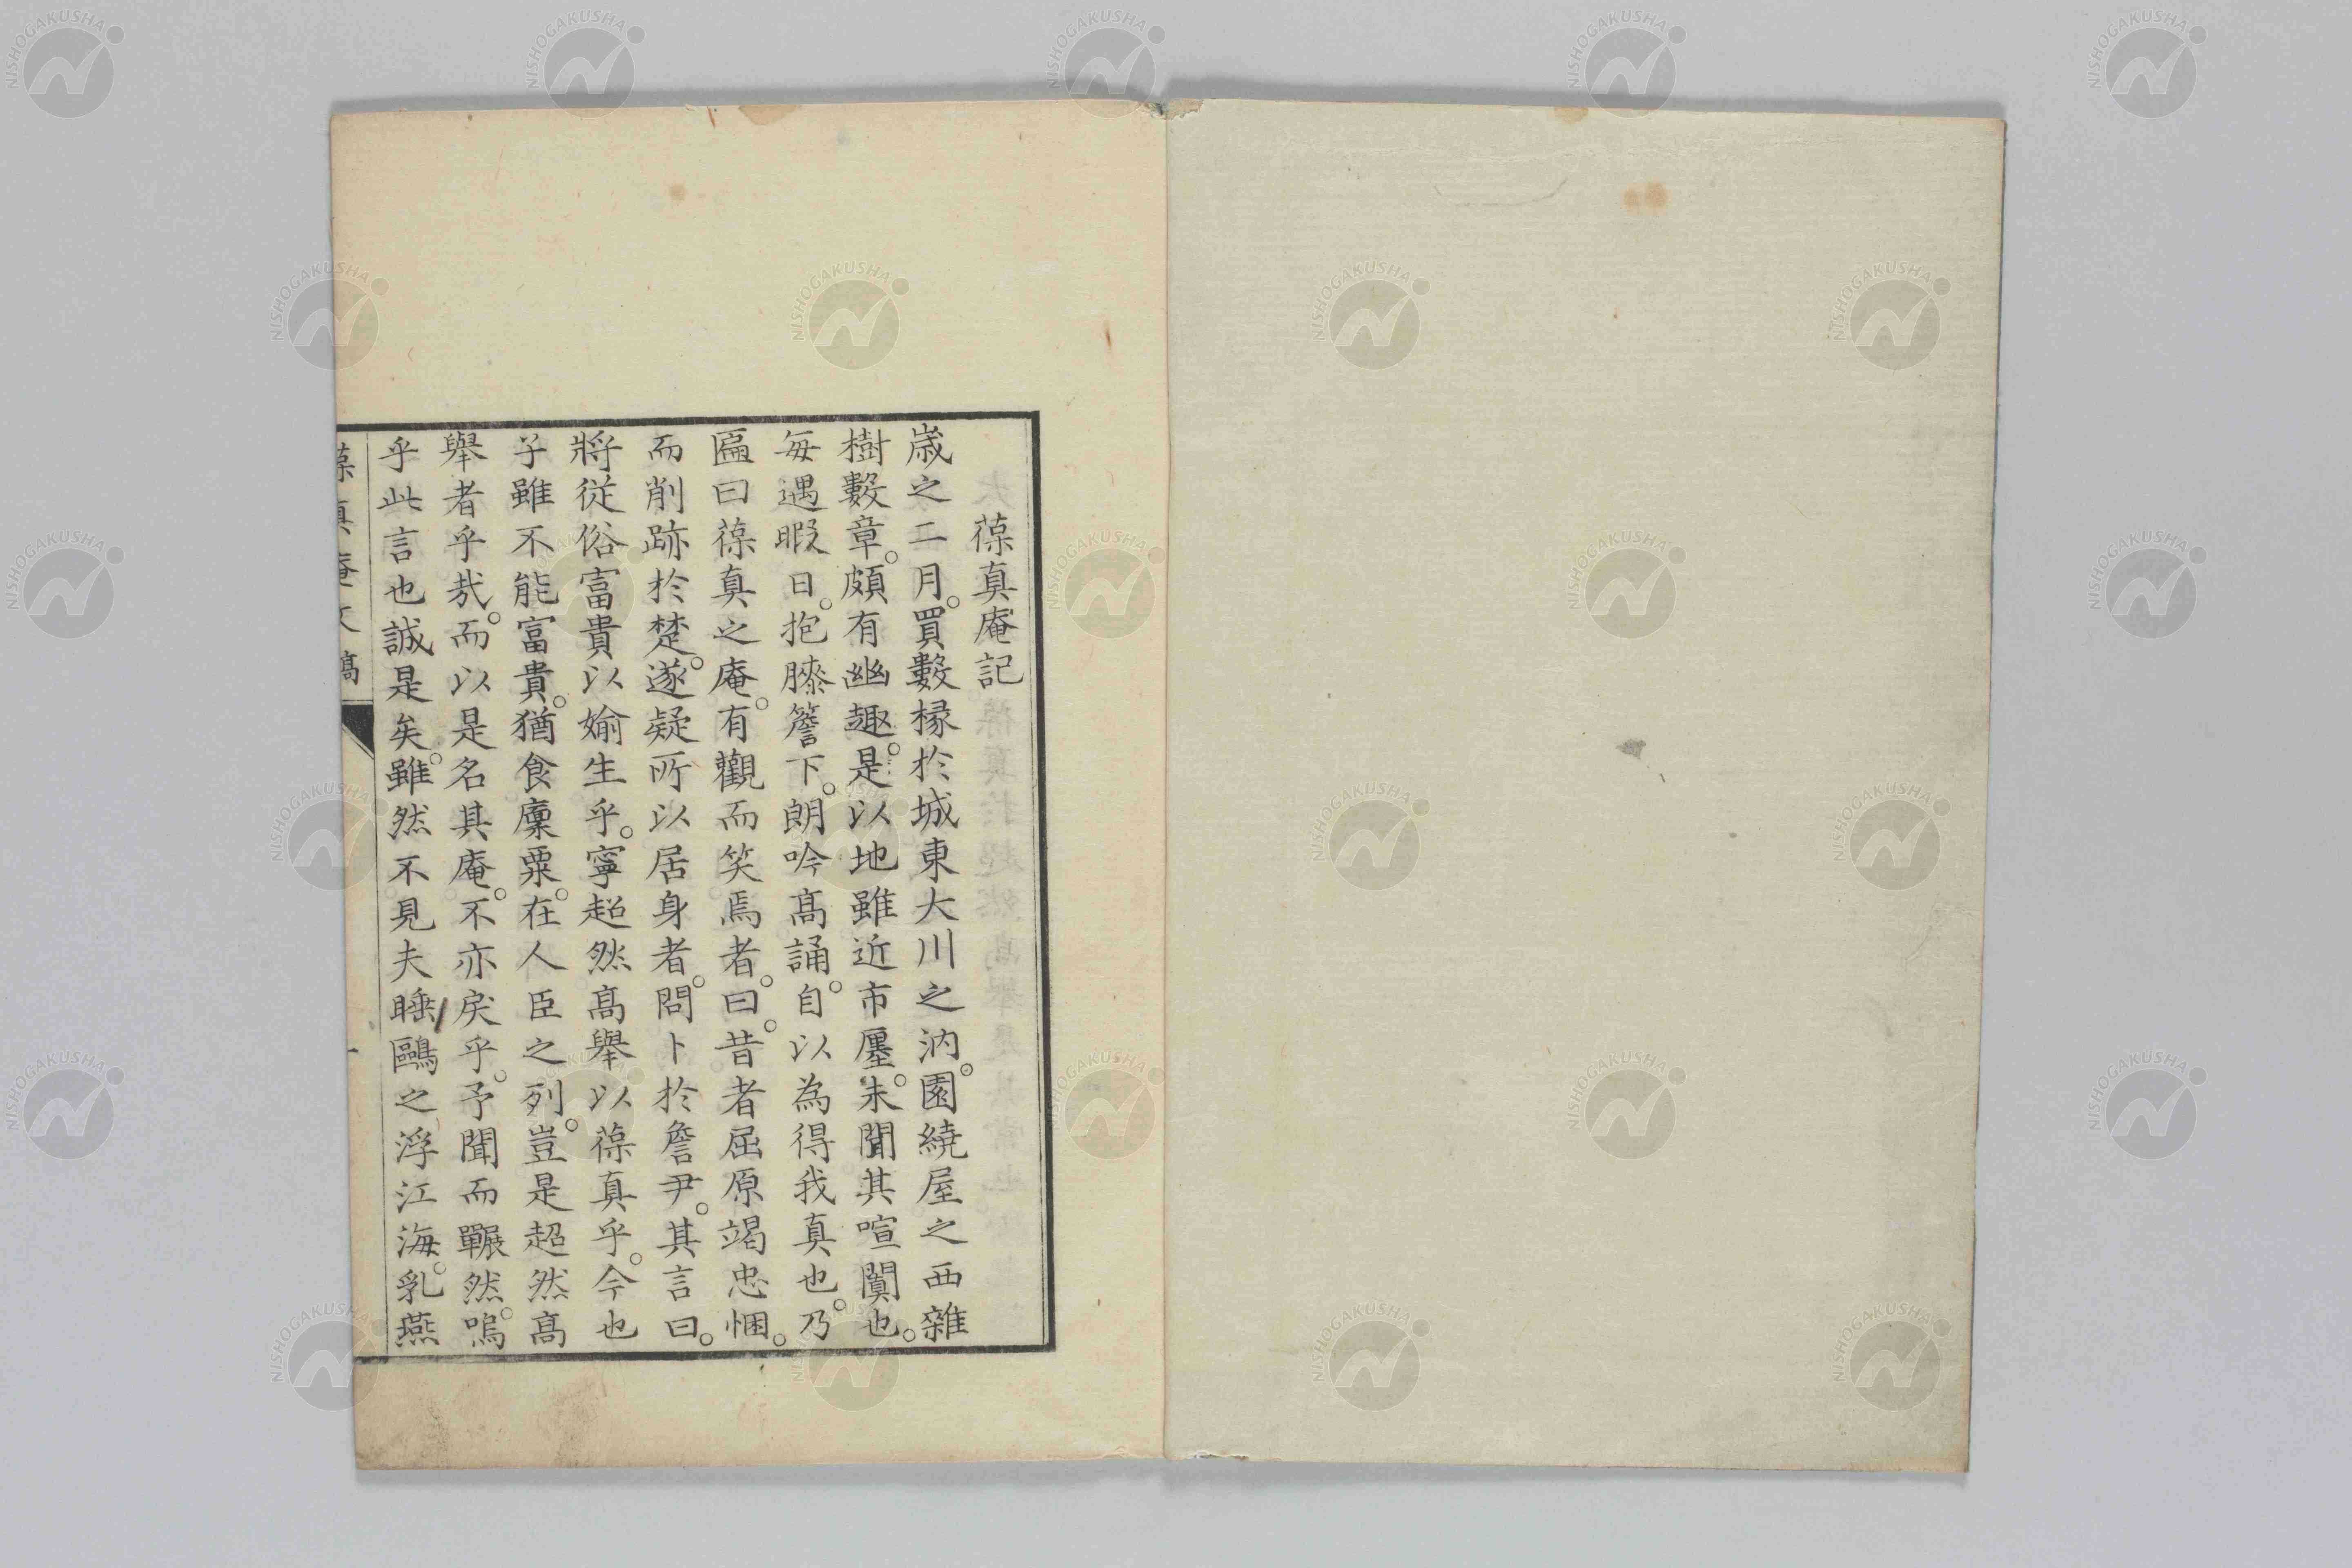 葆真庵記
歳之二月。買數椽於城東大川之汭。園繞屋之西雜
樹數章。頗有幽趣。是以地雖近市廛。未聞其喧闐也。
毎遇暇日。抱膝簷下。朗吟髙誦。自以為得我真也。乃
匾曰葆真之庵。有觀而笑焉者。曰。昔者屈原竭忠悃。
而削跡於楚。遂疑所以居身者。問卜於詹尹。其言曰。
將従俗富貴以婾生乎。寧超然髙舉以葆真乎。今也
子雖不能富貴。猶食廩粟。在人臣之列。豈是超然髙
舉者乎哉。而以是名其庵。不亦戾乎。予聞而囅然。嗚
乎此言也誠是矣。雖然不見夫睡鷗之浮江海。乳燕
葆真庵文稿
一
NISHOGAKUSHA